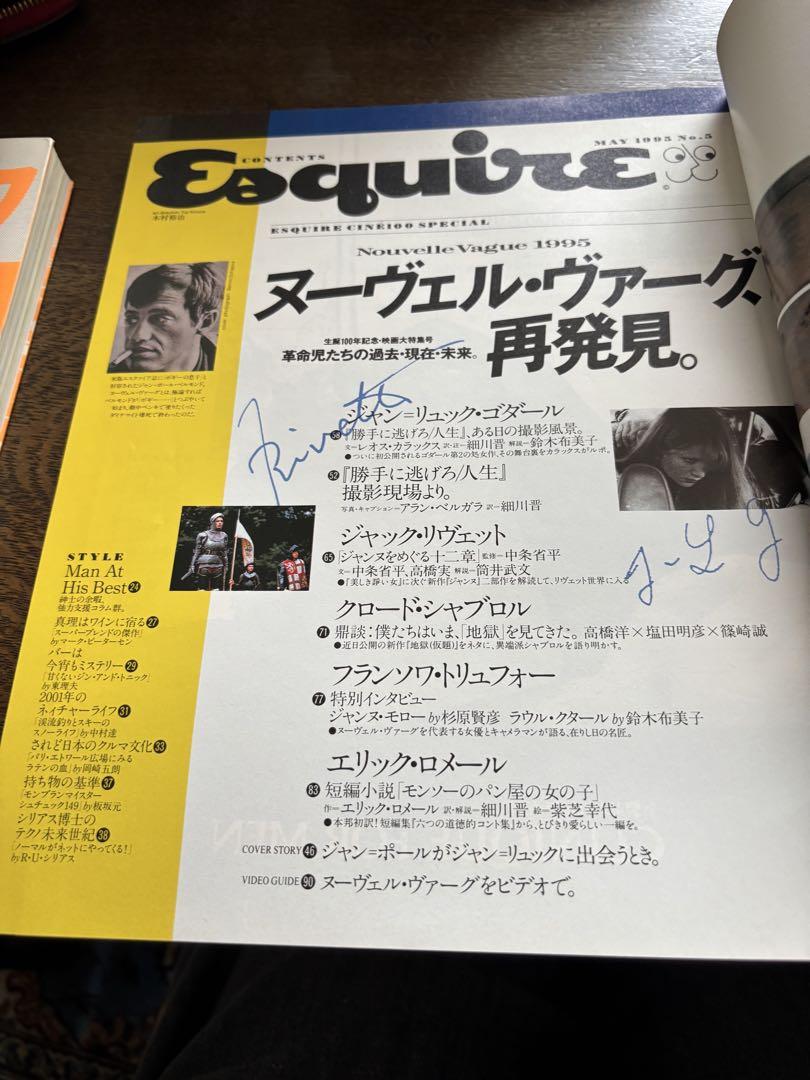 CONTENTS
MAY 1995 No.5
Esquire
木村裕治
ESQUIRE CINE100 SPECIAL
Nouvelle Vague 1995
ヌーヴェル・ヴァーグ、
再発見。
生誕100年記念・映画大特集号
革命児たちの過去・現在・未来。
Rivette
ジャン=リュック・ゴダール
38『勝手に逃げろ/人生』、ある日の撮影風景。
文=レオス・カラックス 訳・註=細川晋 解説=鈴木布美子
●ついに初公開されるゴダール第2の処女作、その舞台裏をカラックスがルポ。
52『勝手に逃げろ/人生』
撮影現場より。
写真・キャプション=アラン・ベルガラ 訳=細川晋
J-L G
ジャック・リヴェット
65「ジャンヌをめぐる十二章」監修=中条省平
文=中条省平、高橋実 解説=筒井武文
●『美しき諍い女』に次ぐ新作『ジャンヌ』二部作を解読して、リヴェット世界に入る
クロード・シャブロル
71 鼎談:僕たちはいま、「地獄」を見てきた。高橋洋×塩田明彦×篠崎誠
●近日公開の新作『地獄(仮題)』をネタに、異端派シャブロルを語り明かす。
フランソワ・トリュフォー
77 特別インタビュー
ジャンヌ・モロー by 杉原賢彦 ラウル・クタール by 鈴木布美子
●ヌーヴェル・ヴァーグを代表する女優とキャメラマンが語る、在りし日の名匠。
エリック・ロメール
83 短編小説「モンソーのパン屋の女の子」
作=エリック・ロメール 訳・解説=細川晋 絵=紫芝幸代
●本邦初訳!短編集『六つの道徳的コント集』から、とびきり愛らしい一編を。
COVER STORY 46 ジャン=ポールがジャン=リュックに出会うとき。
VIDEO GUIDE 90 ヌーヴェル・ヴァーグをビデオで。
STYLE
Man At
His Best 24
紳士の余暇、
強力支援コラム群。
真理はワインに宿る 27
「スーパーブレンドの傑作」
by マーク・ピーターセン
バーは
今宵もミステリー 29
「甘くないジン・アンド・トニック」
by 東理夫
2001年の
ネイチャーライフ 31
「渓流釣りとスキーの
スノーライフ」by 中村達
されど日本のクルマ文化 33
「パリ・エトワール広場にみる
ラテンの血」by 岡崎五朗
持ち物の基準 37
「モンブランマイスター
シュテュック149」by 板坂元
シリアス博士の
テクノ未来世紀 38
「ノーマルがネットにやってくる!」
by R・U・シリアス